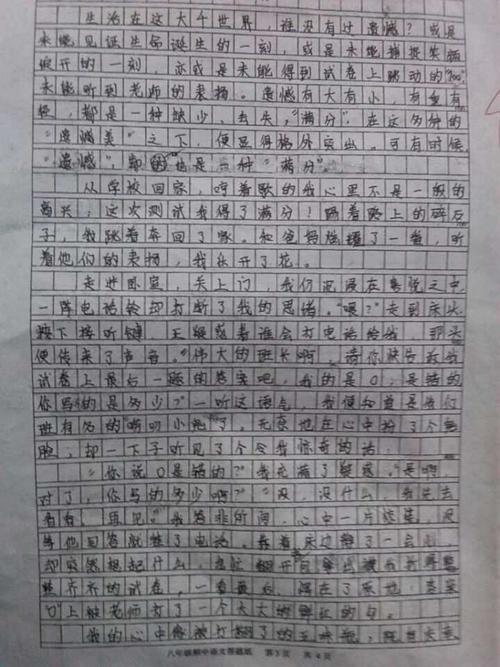 生活在这大千世界，谁没有过遗憾？或是
未能见证生命诞生的一刻，或是未能捕捉笑颜
绽开的一刻，亦或是未能得到试卷上跳动的“100”，
未能听到老师的表扬。遗憾有大有小，有重有
轻，都是一种缺少、丢失，“满分”在这多种的
“遗憾美”之下，便显得格外突出。可有时候，
“遗憾”，却也是一种“满分”。
从学校回家，哼着歌的我心里不是一般的
高兴：这次测试我得了满分！踢着路上的碎石
子，我跳着奔回了家。和爸妈炫耀了一番，听
着他们的表扬，我乐开了花。
走进卧室，关上门，我仍沉浸在喜悦之中，
一阵电话铃却打断了我的思绪。“喂？”走到床头，
按下接听键，正疑惑着谁会打电话给我，那头
便传来了声音。“伟大的班长啊，请你快告诉我
试卷上最后一题的答案吧，我的是0，是错的
你写的是多少？”一听这语气，我便知道是我们
班有名的
脸，却一下子听见了个令我惊奇的话
“你说0是错的？”我充满了疑惑。“是啊
对了，你写的多少啊？”“没，没什么，我先去
看看，再见。”我答非所问，心中一片慌张，没
等他回答就挂了电话。
却突然想起什么，
整齐齐的试卷。一看
“0”上被老师打了一个大大的鲜红的勾。
我的心中像被打翻了的五味瓶，
八年级期中语文答题纸 第3页 共4页